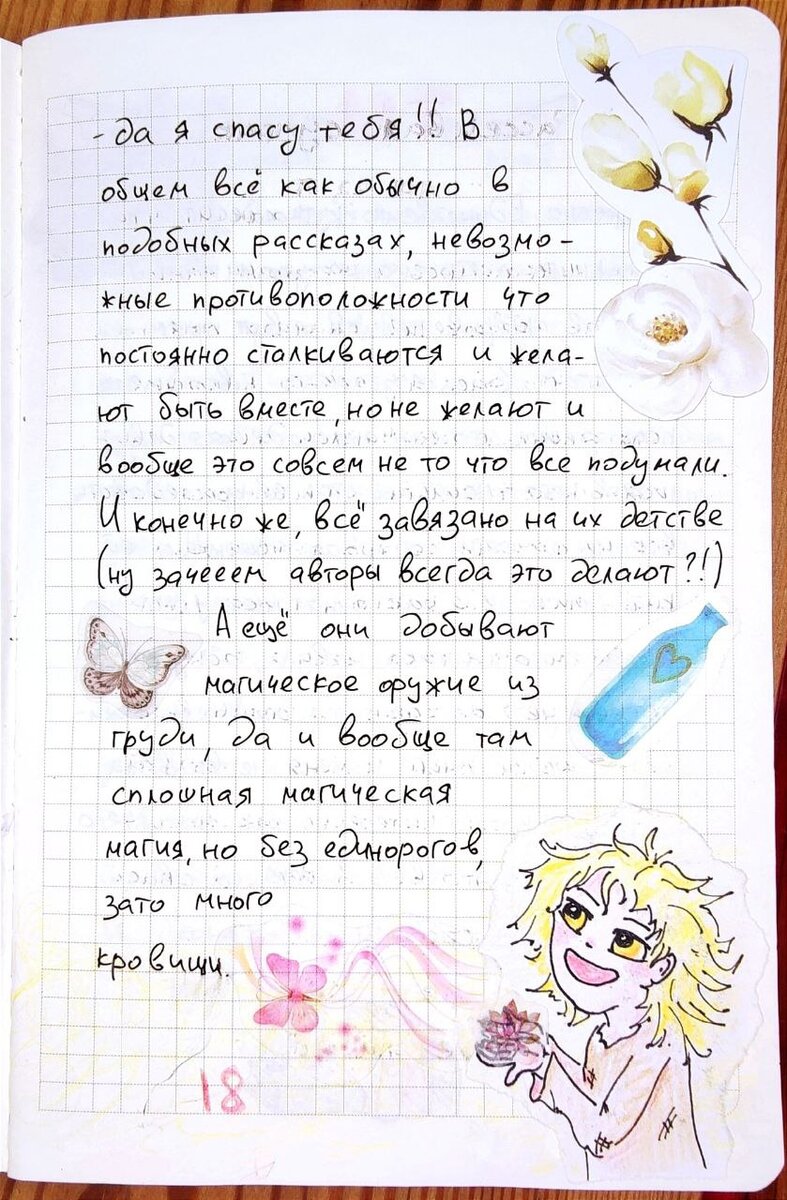 - да я спасу тебя!! В
общем всё как обычно в
подобных рассказах, невозмо-
жные противоположности что
постоянно сталкиваются и жела-
ют быть вместе, но не желают и
вообще это совсем не то что все подумали.
И конечно же, всё завязано на их детстве
(ну зачееем авторы всегда это делают?!)
А ещё они добывают
магическое оружие из
груди, да и вообще там
сплошная магическая
магия, но без единорогов,
зато много
кровищи.
18